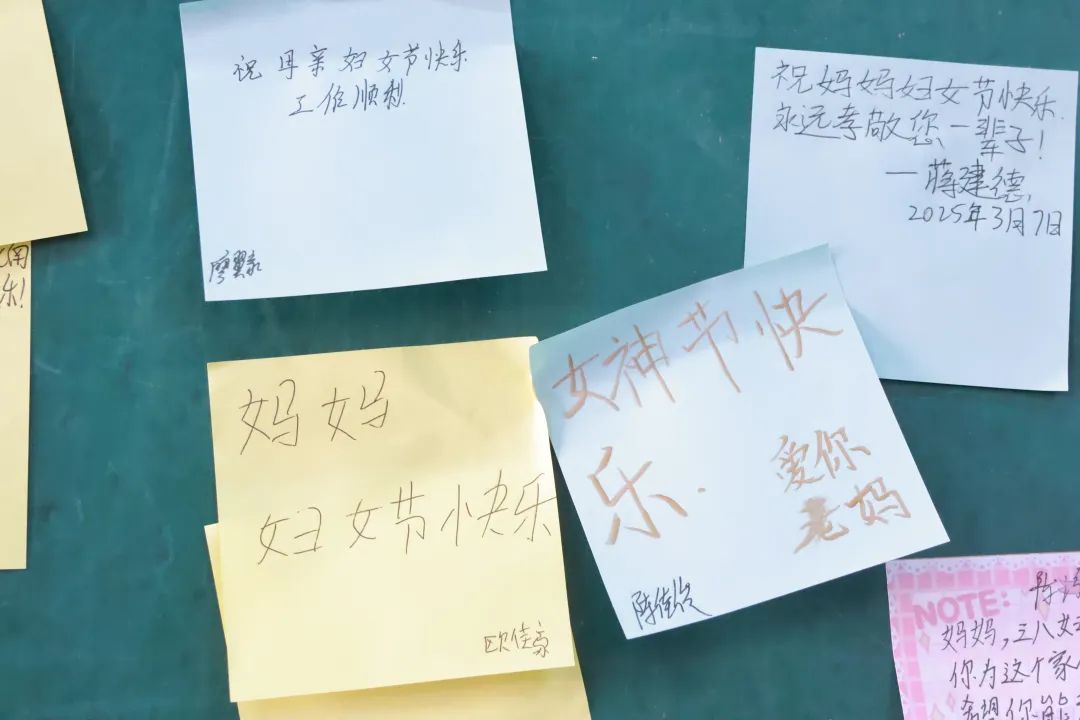 祝母亲妇女节快乐
工作顺利
廖翼永
祝妈妈妇女节快乐
永远孝敬您一辈子!
—蒋建德
2025年3月7日
乐!
妈妈
妇女节快乐
欧佳豪
女神节快
乐.
爱你
老妈
陈佳俊
NOTE:
妈妈,三八女
你为这个家
希望你能